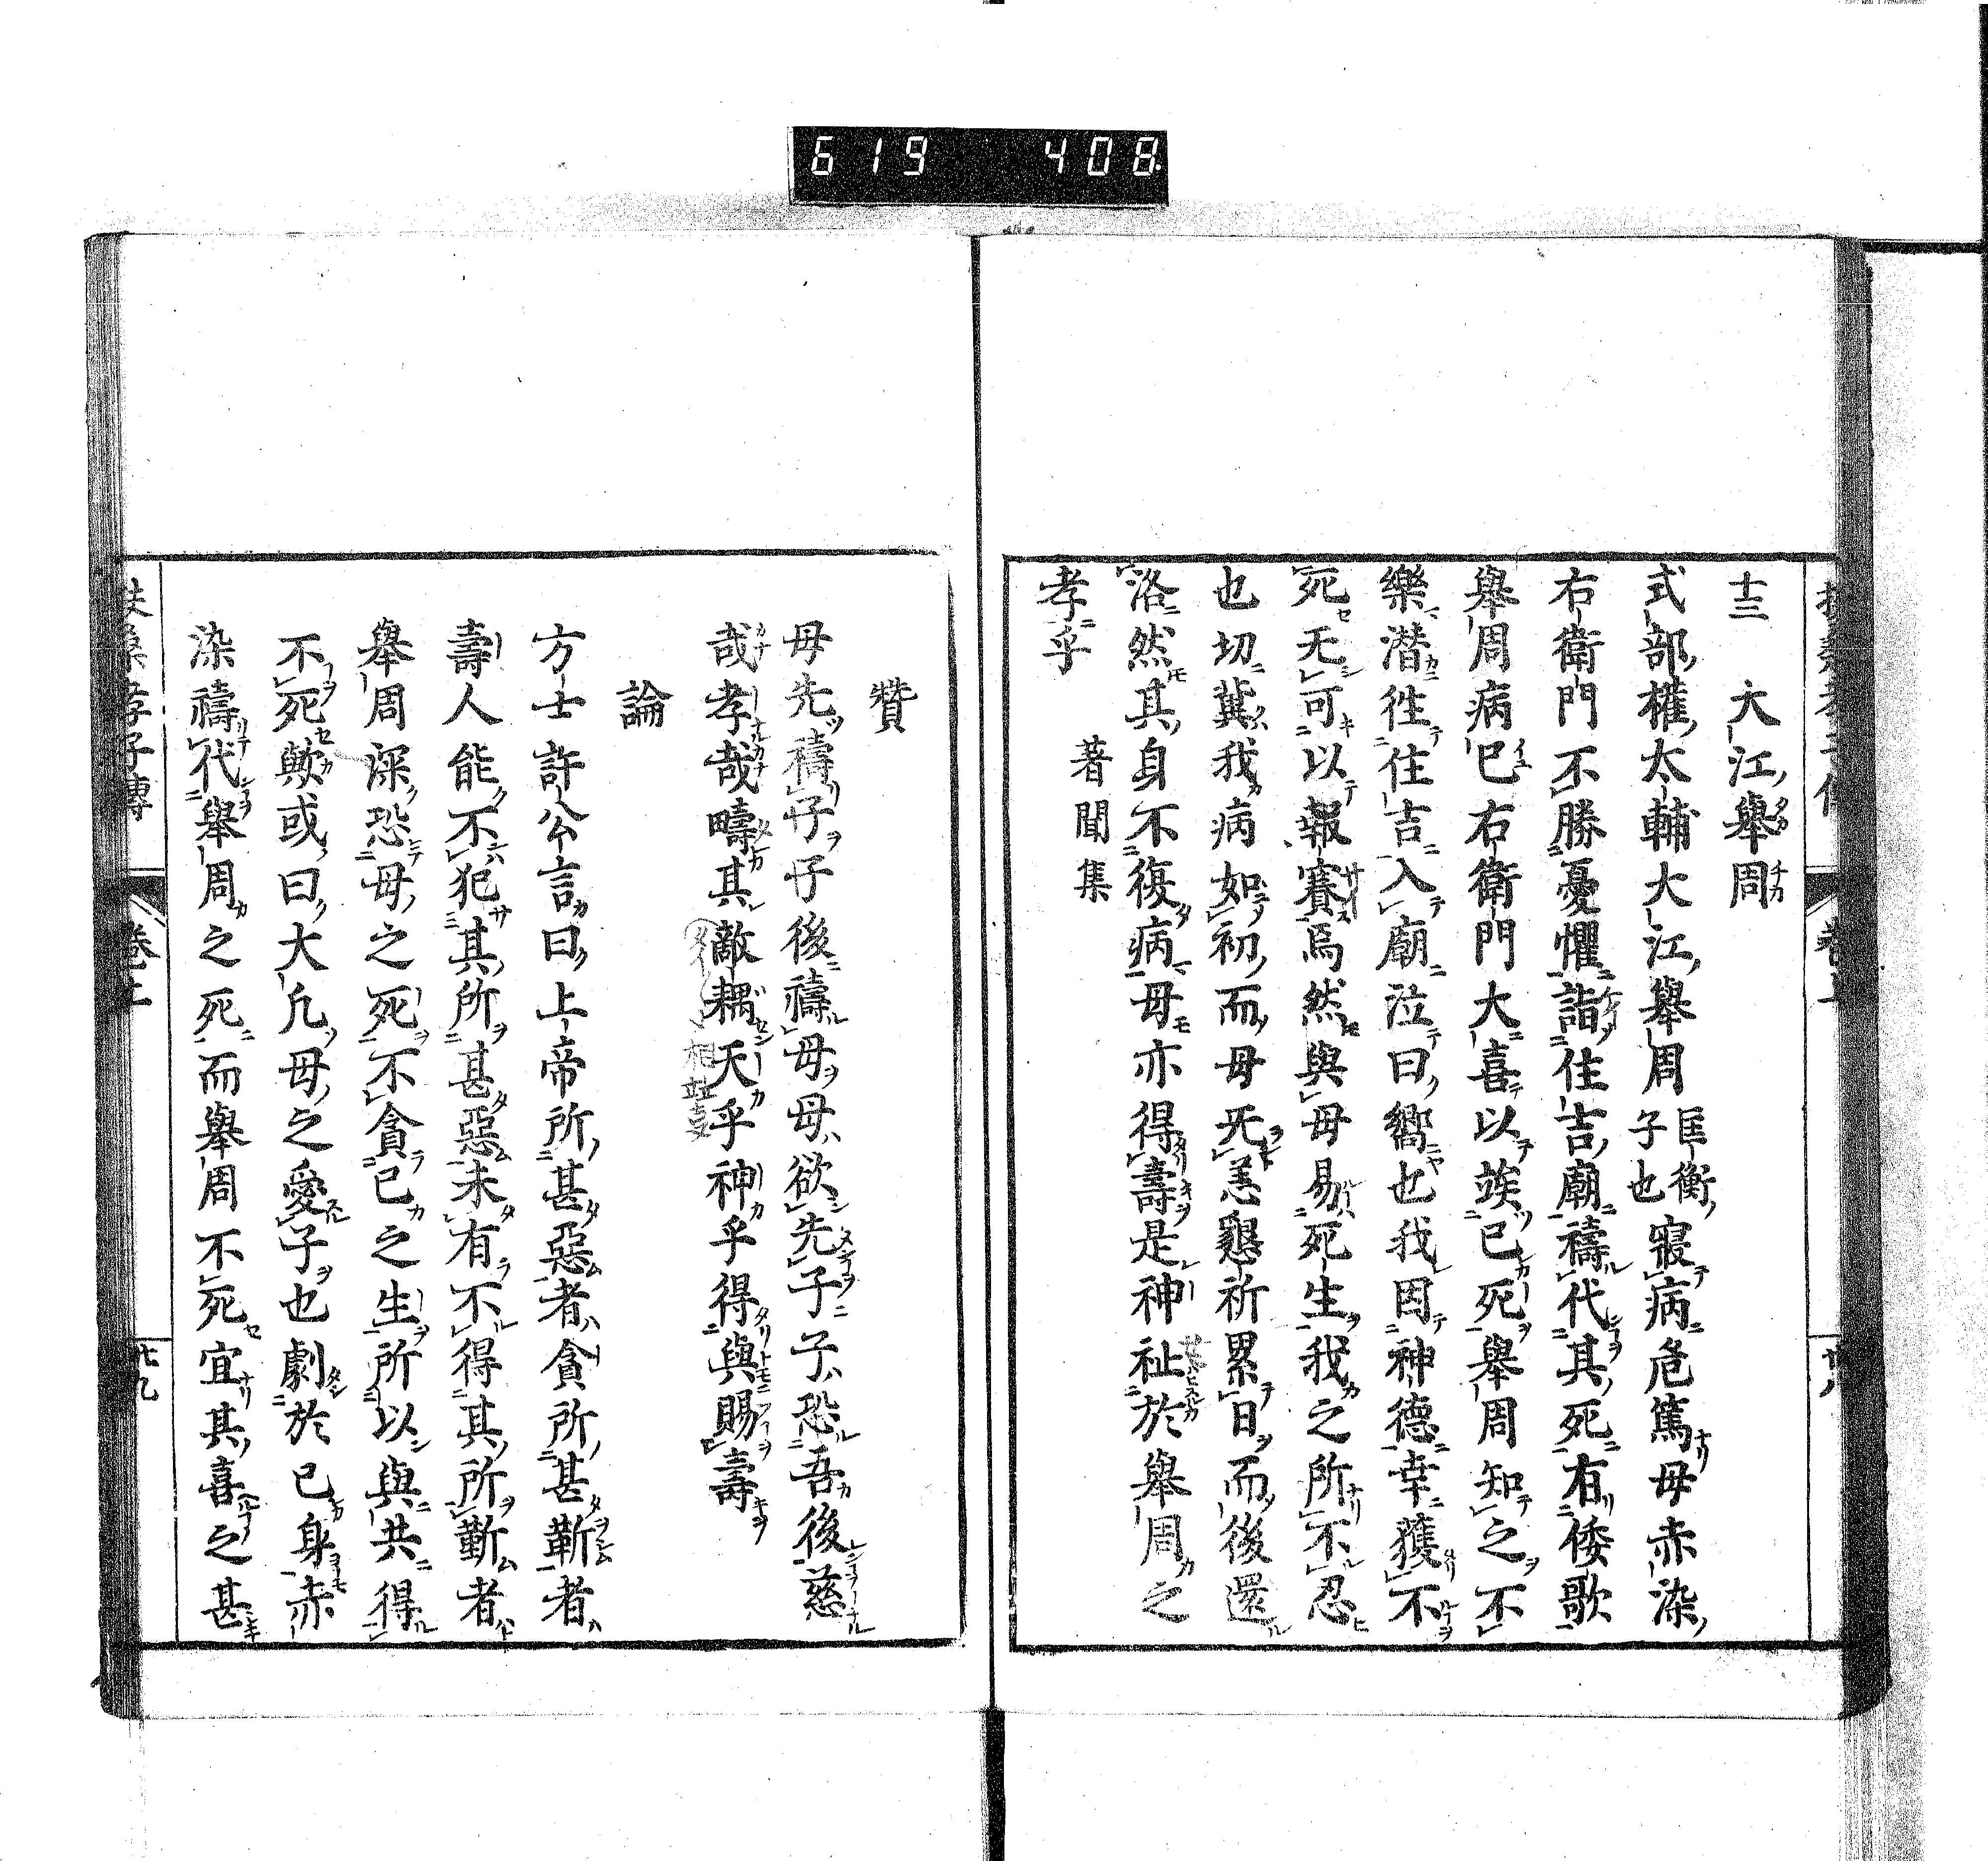 619 408
十三 大江舉周
式部權太輔大江舉周匡衡子也寢病危篤母赤染
右衛門不勝憂懼詣住吉廟禱代其死有倭歌
舉周病已右衛門大喜以竢已死舉周知之不
樂潛徃住吉入廟泣曰嚮也我因神德幸獲不
死无可以報賽焉然與母易死生我之所不忍
也切冀我病如初而母旡恙懇祈累日而後還
洛然其身不復病母亦得壽是神祉於舉周之
孝乎
著聞集
贊
母先禱子子後禱母母欲先子子恐吾後慈
哉孝哉疇其敵耦天乎神乎得與賜壽
論
方士許公言曰上帝所甚惡者貪所甚靳者
壽人能不犯其所甚惡未有不得其所靳者
舉周深恐母之死不貪已之生所以與共得
不死歟或曰大凡母之愛子也劇於已身赤
染禱代舉周之死而舉周不死宜其喜之甚
扶桑孝子傳 卷上 廿九